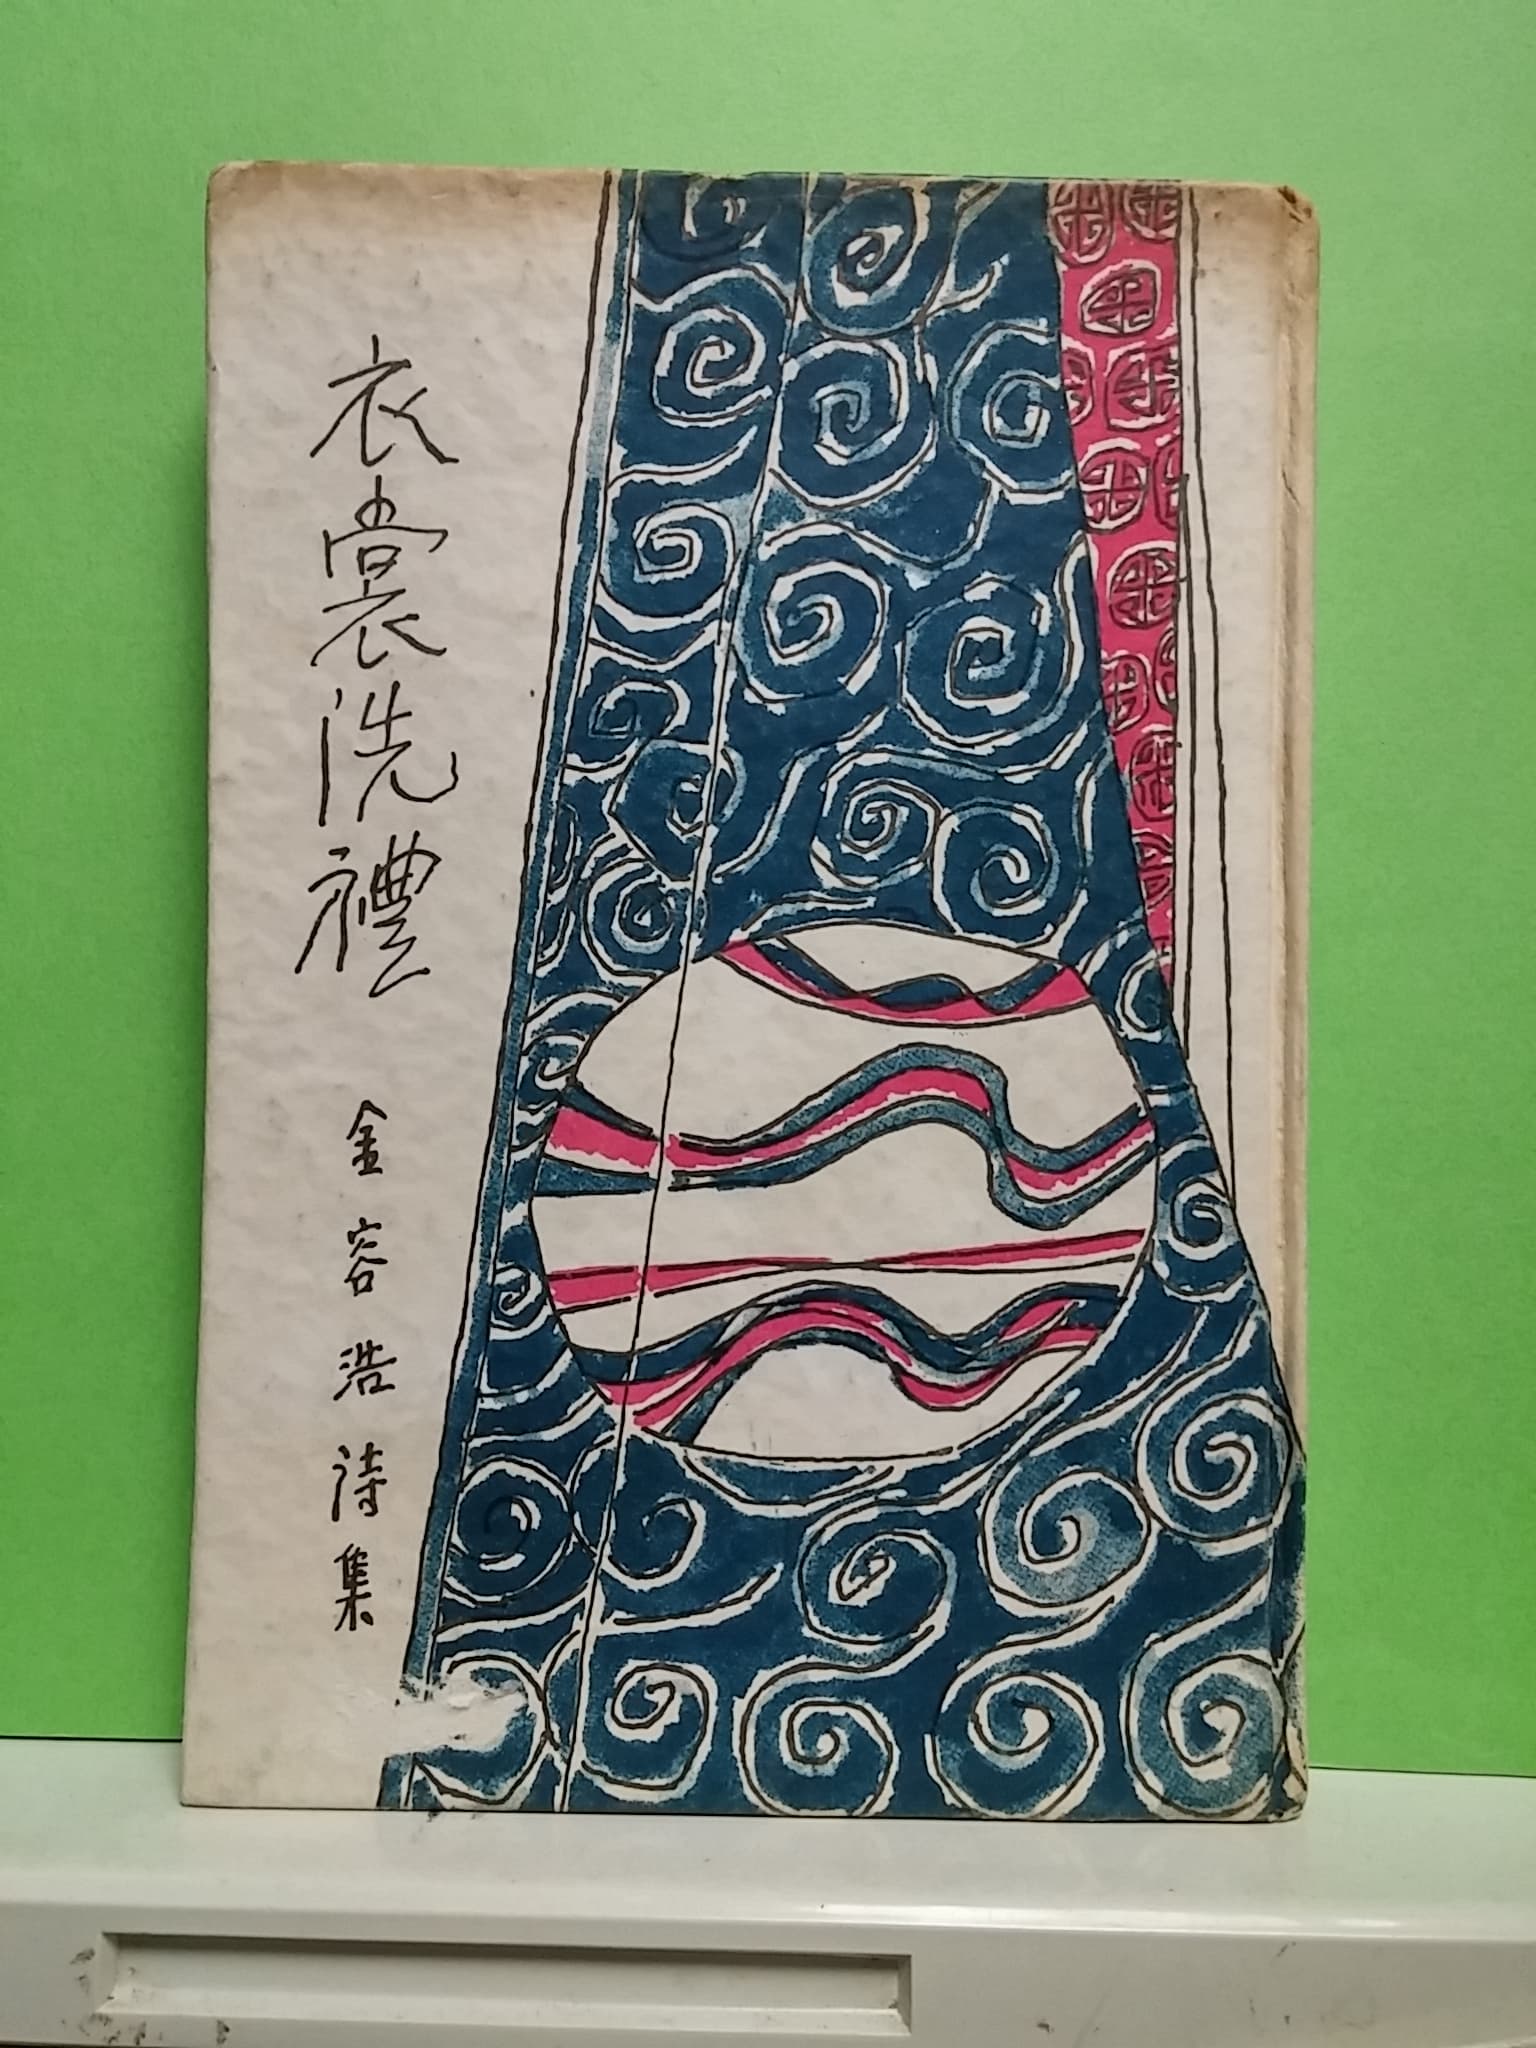 衣裳洗禮
金容浩詩集